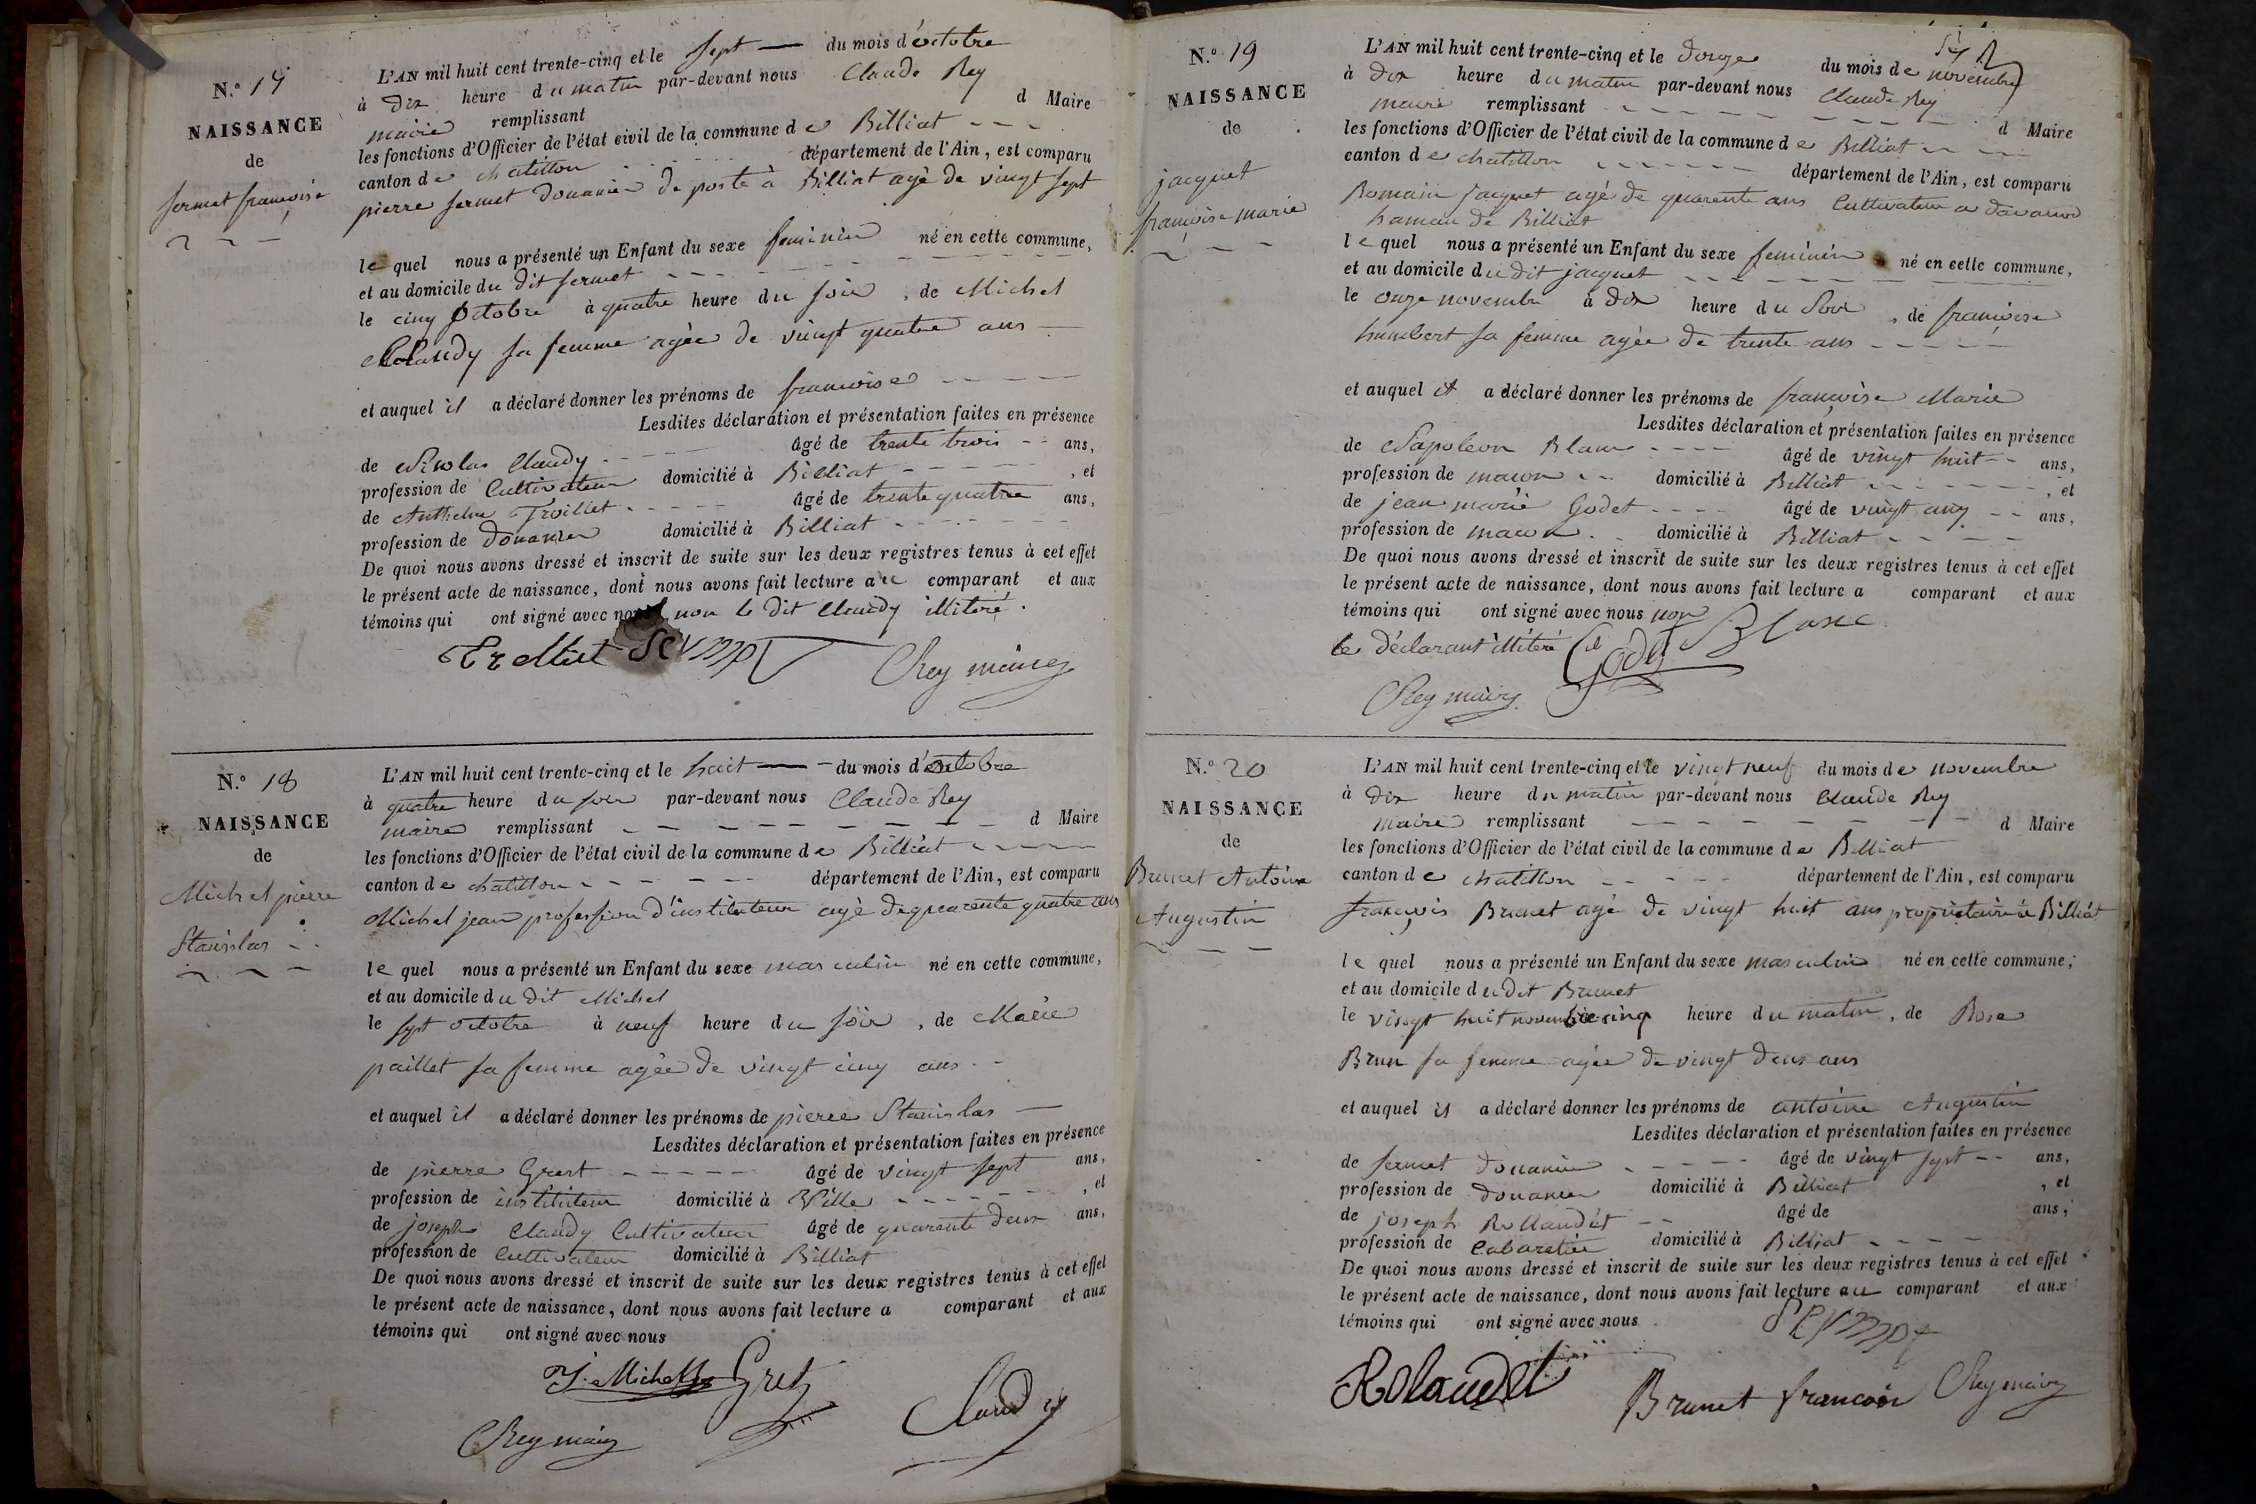 N.º 17
NAISSANCE
de
fermet françoise
L'AN mil huit cent trente-cinq et le sept du mois d'octobre
à dix heure du matin par-devant nous Claude Rey
maire remplissant d Maire
les fonctions d'Officier de l'état civil de la commune de Billiat
canton de chatillon département de l'Ain, est comparu
pierre fermet douanier de poste à Billiat agé de vingt sept
le quel nous a présenté un Enfant du sexe feminin né en cette commune,
et au domicile du dit fermet
le cinq octobre à quatre heure du soir, de Michel
Claudy sa femme agée de vingt quatre ans
et auquel il a déclaré donner les prénoms de françoise
Lesdites déclaration et présentation faites en présence
de Nicolas Claudy âgé de trente trois ans,
profession de Cultivateur domicilié à Billiat, et
de Anthelme âgé de trente quatre ans,
profession de douanier domicilié à Billiat
De quoi nous avons dressé et inscrit de suite sur les deux registres tenus à cet effet
le présent acte de naissance, dont nous avons fait lecture au comparant et aux
témoins qui ont signé avec nous non le dit Claudy illiteré.
fermet Rey maire
N.º 18
NAISSANCE
de
Michel pierre
Stanislas
L'AN mil huit cent trente-cinq et le huit du mois d'octobre
à quatre heure du soir par-devant nous Claude Rey
maire remplissant d Maire
les fonctions d'Officier de l'état civil de la commune de Billiat
canton de chatillon département de l'Ain, est comparu
Michel jean profession d'instituteur agé de quarente quatre ans
le quel nous a présenté un Enfant du sexe masculin né en cette commune,
et au domicile du dit Michel
le sept octobre à neuf heure du soir, de Marie
paillet sa femme agée de vingt cinq ans
et auquel il a déclaré donner les prénoms de pierre Stanislas
Lesdites déclaration et présentation faites en présence
de pierre Gret âgé de vingt sept ans,
profession de instituteur domicilié à Ville, et
de joseph Claudy Cultivateur âgé de quarente deux ans,
profession de Cultivateur domicilié à Billiat
De quoi nous avons dressé et inscrit de suite sur les deux registres tenus à cet effet
le présent acte de naissance, dont nous avons fait lecture a comparant et aux
témoins qui ont signé avec nous
J. Michel Gret
Rey maire Claudy
N.º 19
NAISSANCE
de
jacquet
françoise marie
L'AN mil huit cent trente-cinq et le douze du mois de novembre
à dix heure du matin par-devant nous Claude Rey
maire remplissant d Maire
les fonctions d'Officier de l'état civil de la commune de Billiat
canton de chatillon département de l'Ain, est comparu
Romain jacquet agé de quarente ans Cultivateur a davanod
hamau de Billiat
le quel nous a présenté un Enfant du sexe feminin né en cette commune,
et au domicile du dit jacquet
le onze novembre à dix heure du Soir, de françoise
humbert sa femme agée de trente ans
et auquel il a déclaré donner les prénoms de françoise Marie
Lesdites déclaration et présentation faites en présence
de Napoleon Blanc âgé de vingt huit ans,
profession de macon domicilié à Billiat, et
de jean marie Godet âgé de vingt cinq ans,
profession de macon domicilié à Billiat
De quoi nous avons dressé et inscrit de suite sur les deux registres tenus à cet effet
le présent acte de naissance, dont nous avons fait lecture a comparant et aux
témoins qui ont signé avec nous non
le déclarant illiteré Godet Blanc
Rey maire
N.º 20
NAISSANCE
de
Brunet Antoine
Augustin
L'AN mil huit cent trente-cinq et le vingt neuf du mois de novembre
à dix heure du matin par-devant nous Claude Rey
maire remplissant d Maire
les fonctions d'Officier de l'état civil de la commune de Billiat
canton de chatillon département de l'Ain, est comparu
françois Brunet agé de vingt huit ans propriétaire à Billiat
le quel nous a présenté un Enfant du sexe masculin né en cette commune,
et au domicile du dit Brunet
le vingt huit novembre cinq heure du matin, de Rose
Brun sa femme agée de vingt deux ans
et auquel il a déclaré donner les prénoms de antoine Augustin
Lesdites déclaration et présentation faites en présence
de fermet douanier âgé de vingt sept ans,
profession de douanier domicilié à Billiat, et
de joseph Rollandet âgé de ans,
profession de Cabaretier domicilié à Billiat
De quoi nous avons dressé et inscrit de suite sur les deux registres tenus à cet effet
le présent acte de naissance, dont nous avons fait lecture au comparant et aux
témoins qui ont signé avec nous
fermet
Rolandet Brunet françois Rey maire